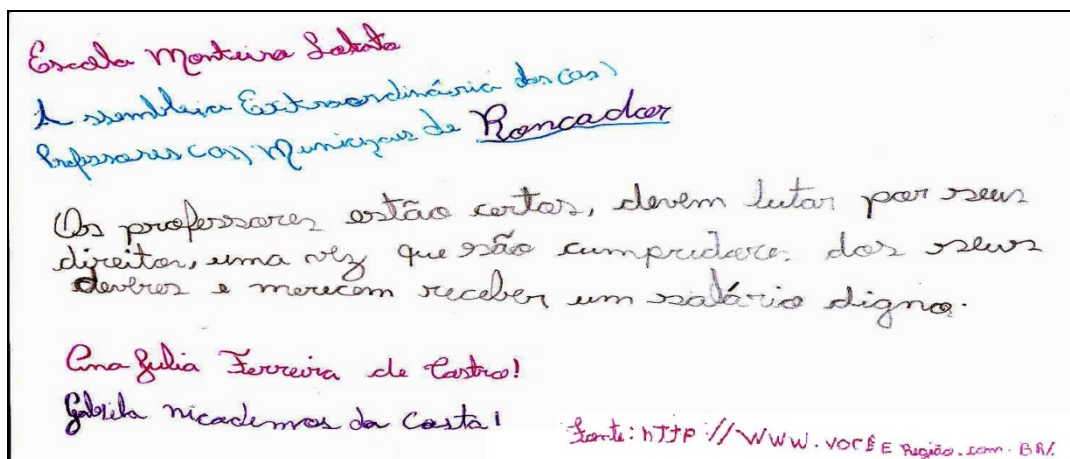 Escola Monteiro Lobato
Assembleia Extraordinária dos (as)
Professores (as) Municipais de Roncador
Os professores estão certos, devem lutar por seus
direitos, uma vez que são cumpridores dos seus
deveres e merecem receber um salário digno.
Ana Julia Ferreira de Castro!
Gabriela Nicademos da Costa!
Fonte: http://www.vocêEREgião.com.BR/